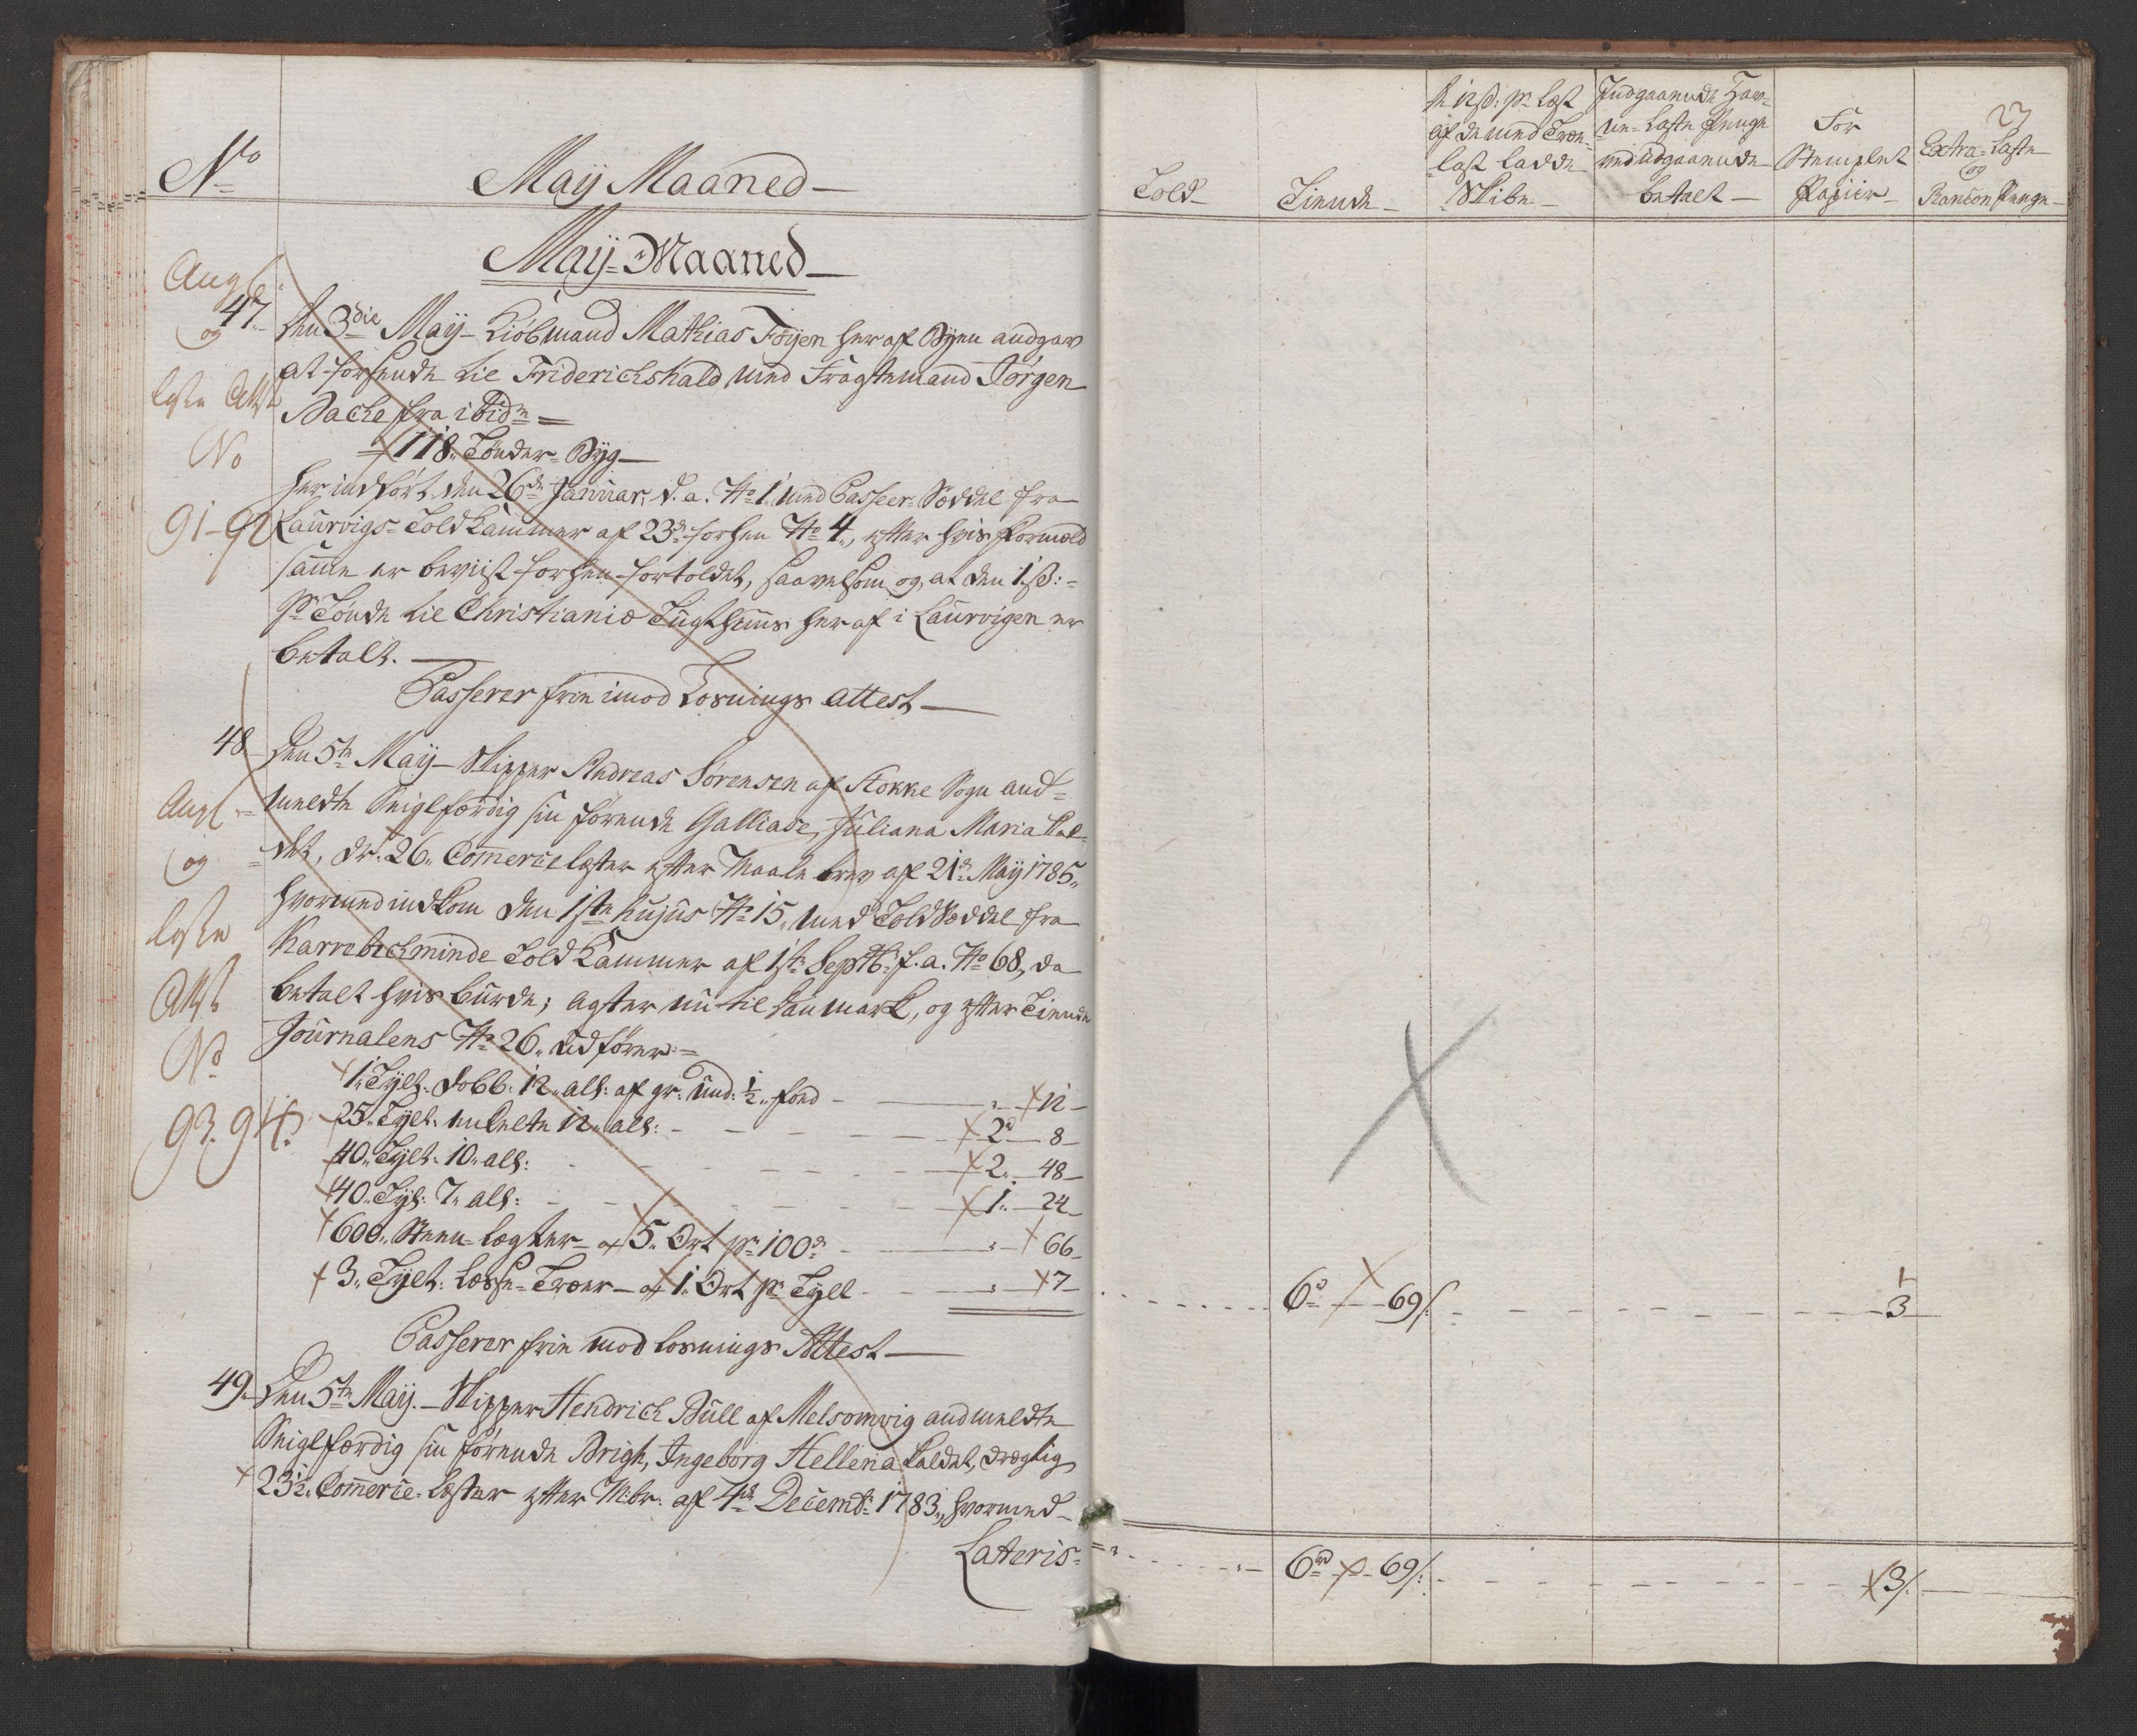 No
May Maaned
May Maaned
Angl
47
og
Den 3die May Kiöbmand Mathias Föyen her af Byen andgav
at forsende til Friderichshald med Fragtemand Jörgen
Bache fra ibidm
118 Tönder Byg
No
91-92
her indfört den 26de Januar d. a. No 1 med Passeer Sæddel fra
Laurvigs Toldkammer af 23de forhen No 4, efter hvis Formeld
samme er beviist forhen fortoldet, saavelsom og, at den 1 s:
pr Tönde til Christianiæ Tugthuus her af i Laurvigen er
betalt.
Passerer frie imod Losnings attest
48
Den 5te May Skipper Andreas Sörensen af Stokke Sogn and=
Angl
meldte Seiglfærdig sin förende Galliase, Juliana Maria kal=
og
det, dr. 26 Commerce læster efter Maale brev af 21de May 1785,
hvormed indkom den 1ste hujus No 15 med Toldsæddel fra
Karrebechminde Told Kammer af 1ste Septbr: f. a. No 68, da
Att
betalt hvis burde; agter nu til Danmark, og efter Tiende
No
Journalens No 26 udförer
93. 94.
1 Tylt dobb: 12 all: af gr: und: ½ foed 12
25 Tylt enkelte 12 all: 2 8
40 Tylt 10 all: 2 48
40 Tyl: 7 all: 1 24
600 Steen-Lægter af 5 Ort pr 100de 66
3 Tylt: Læsse-Træer af 1 Ort pr Tylt 7
Passerer frie mod losnings Attest
49
Den 5te May. Skipper Hendrich Bull af Melsomvig andmeldte
Seiglfærdig sin förende Brigh, Ingeborg Hellena kaldet, drægtig
23½ Commerce-Læster efter M:br: af 4de Decembr: 1783, hvormed
Lateris
27
Told
Tiende
pr Læst
af de med Træe
last ladde
Skibe
Indgaaende Hav=
ne-Laste Penge
ved udgaaende
betalt
For
Stemplet
Papiir
Extra-Laste
og
Rancon Penge
6 69 s:
3
6 69 s:
3 s: